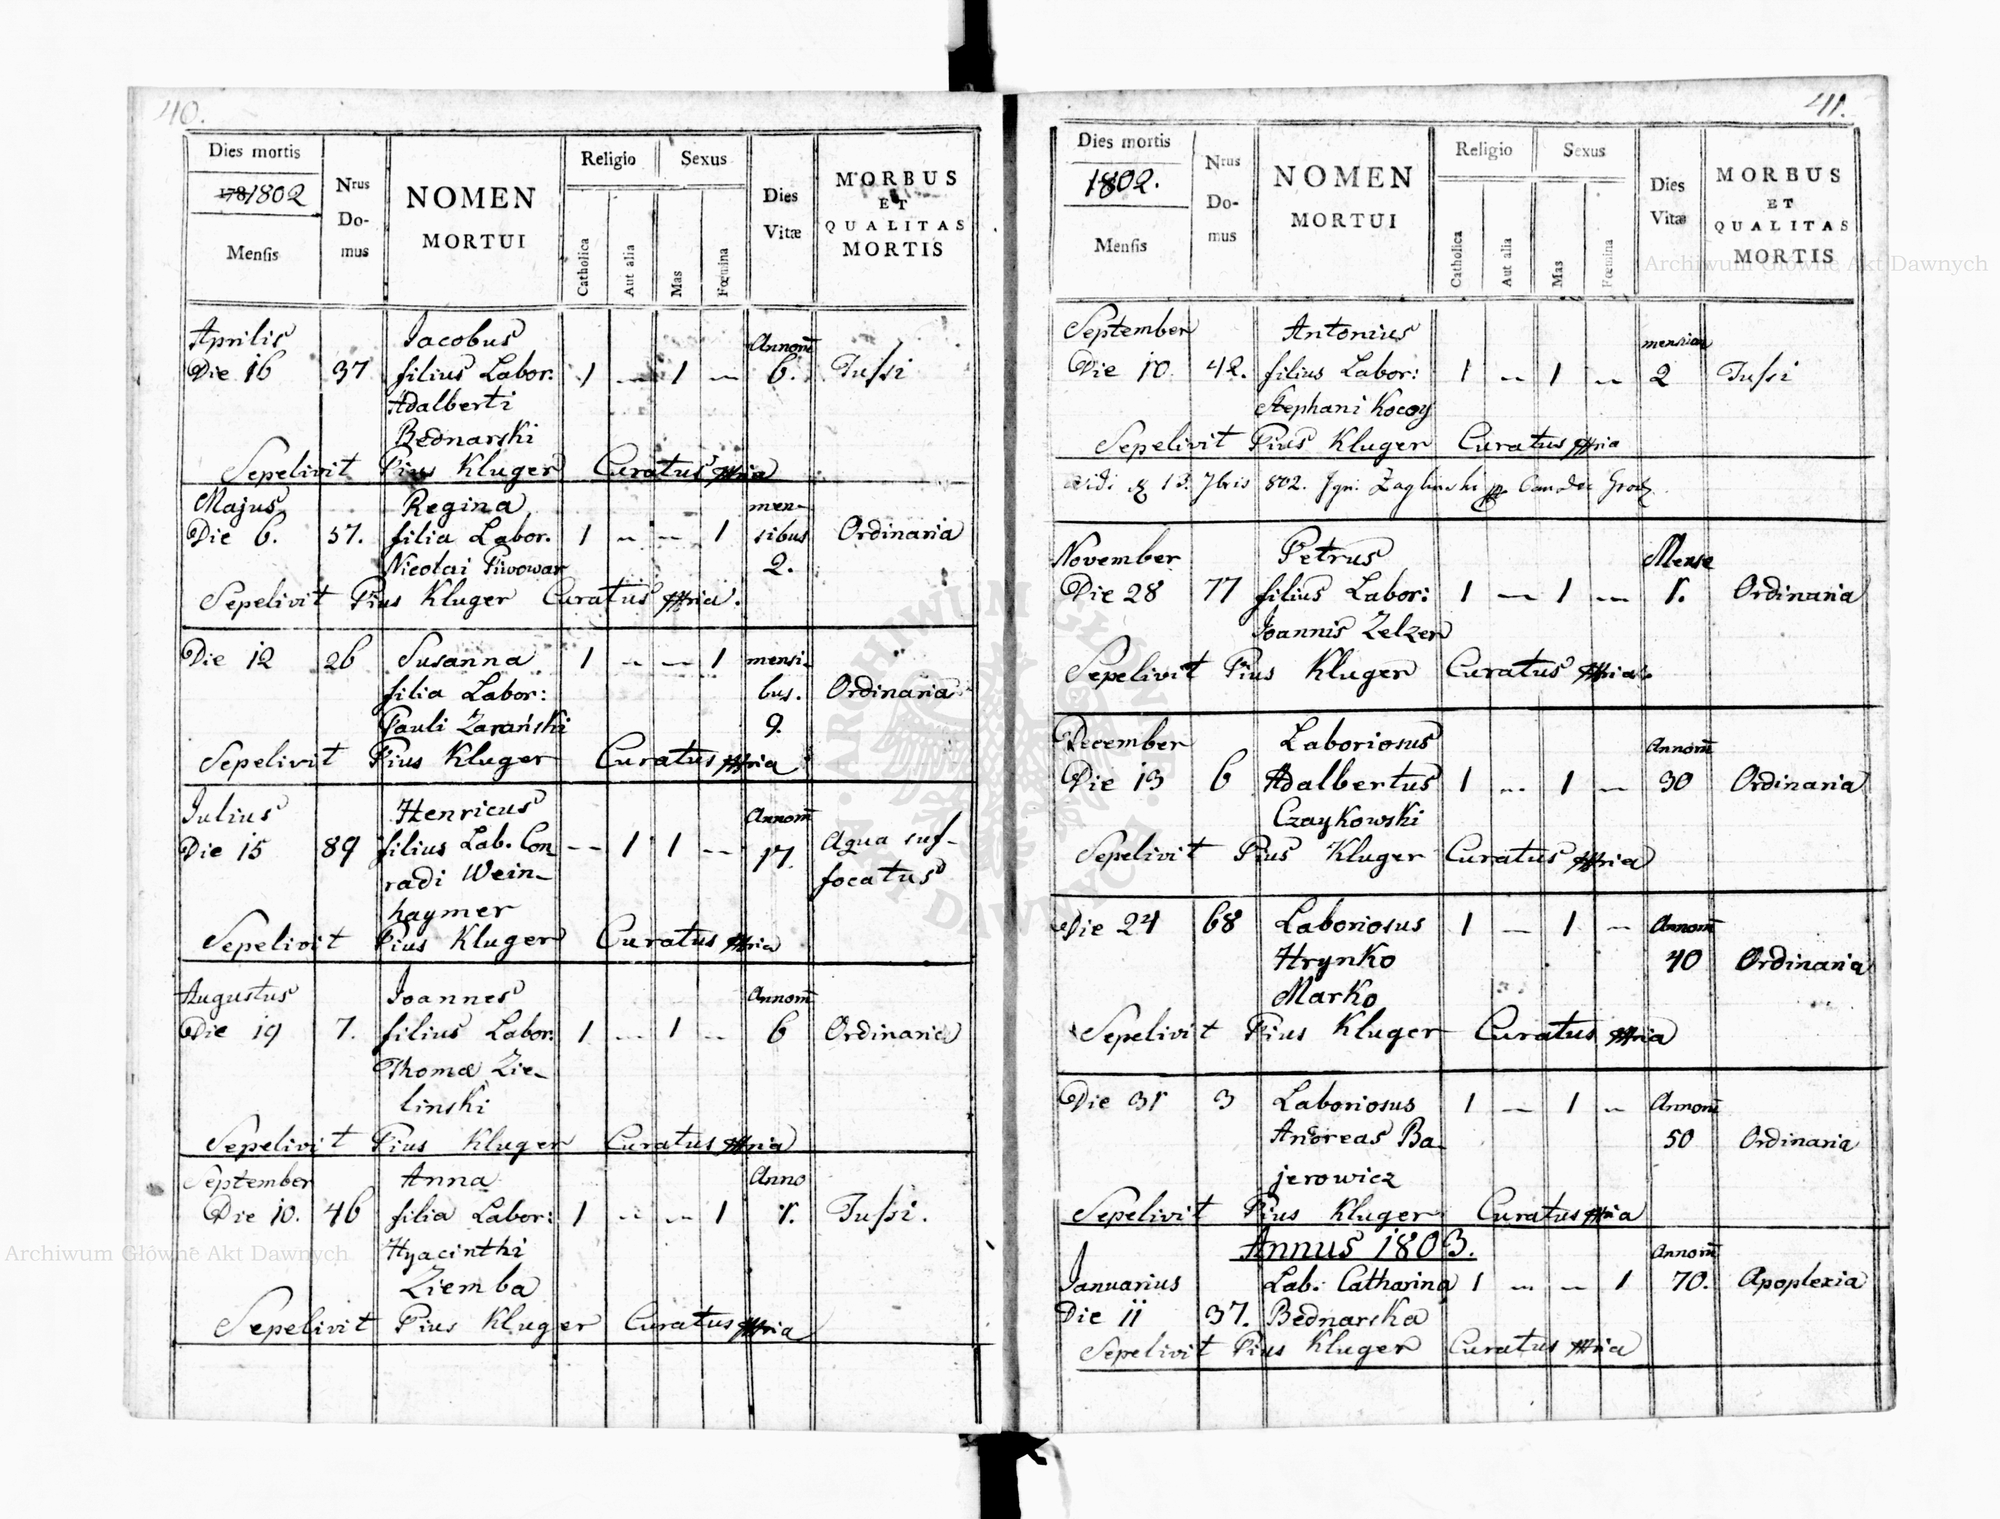 40.
Dies mortis
1781802
Mensis
Nrus
Do-
mus
NOMEN
MORTUI
Religio
Catholica
Aut alia
Sexus
Mas
Fœmina
Dies
Vitæ
MORBUS
ET
QUALITAS
MORTIS
Aprilis Jacobus Annorū
Die 16 37 filius Labor: 1 — 1 — 6. Tussi
Adalberti
Bednarski
Sepelivit Pius Kluger Curatus
Majus Regina men-
Die 6. 57. filia Labor. 1 — — 1 sibus Ordinaria
Nicolai Piwowar 2.
Sepelivit Pius Kluger Curatus
Die 12 26 Susanna 1 — — 1 mensi-
filia Labor: bus. Ordinaria
Pauli Zarański 9.
Sepelivit Pius Kluger Curatus
Julius Henricus Annorū
Die 15 89 filius Lab. Con — 1 1 — 17. Aqua suf-
radi Wein- focatus
haymer
Sepelivit Pius Kluger Curatus
Augustus Joannes Annorū
Die 19 7. filius Labor: 1 — 1 — 6 Ordinaria
Thomæ Zie-
linski
Sepelivit Pius Kluger Curatus
September Anna Anno
Die 10. 46 filia Labor: 1 — — 1 1. Tussi.
Hyacinthi
Ziemba
Sepelivit Pius Kluger Curatus
41.
Dies mortis
1802.
Mensis
Nrus
Do-
mus
NOMEN
MORTUI
Religio
Catholica
Aut alia
Sexus
Mas
Fœmina
Dies
Vitæ
MORBUS
ET
QUALITAS
MORTIS
September Antonius mensium
Die 10. 42. filius Labor: 1 — 1 — 2 Tussi
Stephani Kocoy
Sepelivit Pius Kluger Curatus
13. 7bris 802.
November Petrus Mense
Die 28 77 filius Labor: 1 — 1 — 1. Ordinaria
Joannis Zelzer
Sepelivit Pius Kluger Curatus
December Laboriosus Annorū
Die 13 6 Adalbertus 1 — 1 — 30 Ordinaria
Czaykowski
Sepelivit Pius Kluger Curatus
Die 24 68 Laboriosus 1 — 1 — Annorū
Hrynko 40 Ordinaria
Marko
Sepelivit Pius Kluger Curatus
Die 31 3 Laboriosus 1 — 1 — Annorū
Andreas Ba- 50 Ordinaria
jerowicz
Sepelivit Pius Kluger Curatus
Annus 1803. Annorū
Januarius Lab: Catharina 1 — — 1 70. Apoplexia
Die 11 37. Bednarska
Sepelivit Pius Kluger Curatus
Archiwum Główne Akt Dawnych
Archiwum Główne Akt Dawnych
ARCHIWUM GŁÓWNE AKT DAWNYCH